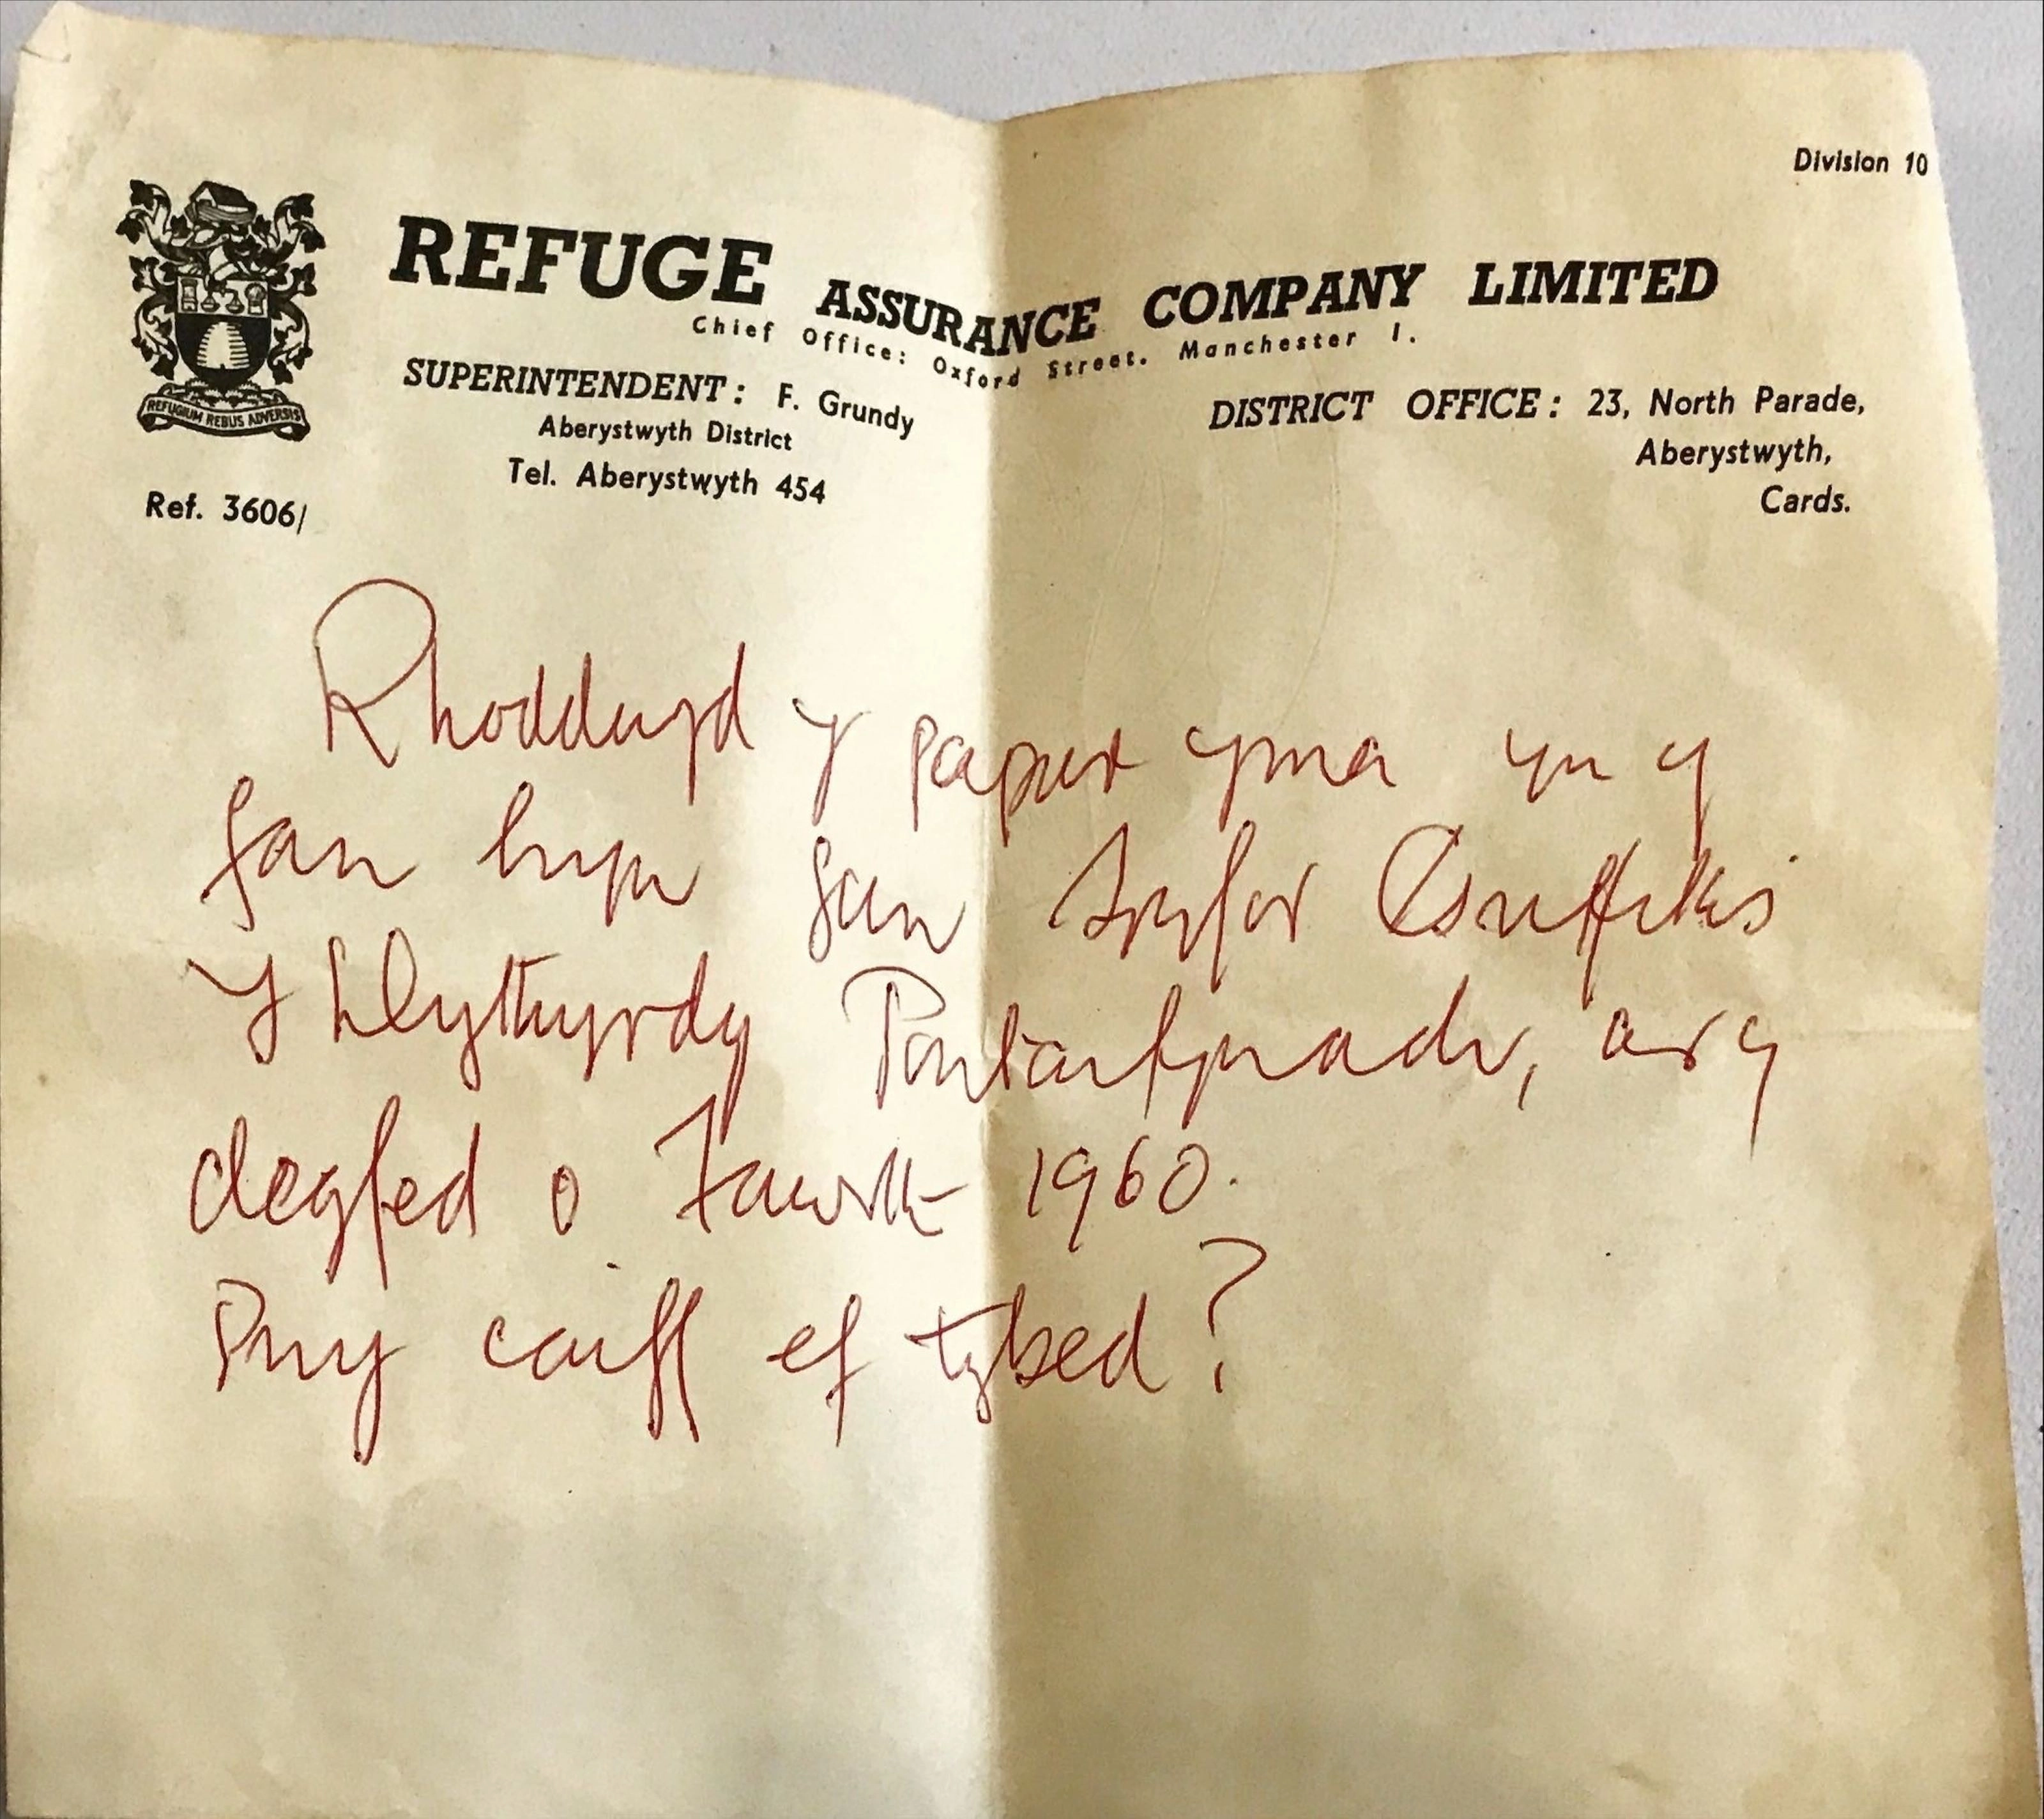 Division 10
REFUGE ASSURANCE COMPANY LIMITED
Chief Office: Oxford Street, Manchester 1.
SUPERINTENDENT: F. Grundy
Aberystwyth District
Tel. Aberystwyth 454
DISTRICT OFFICE: 23, North Parade,
Aberystwyth,
Cards.
REFUGIUM REBUS ADVERSIS
Ref. 3606/
Rhoddwyd y papur yma yn y
fan hyn gan
Y Llythyrdy Pontarfynach, ar y
degfed o Fawrth 1960.
Pwy caiff ef tybed?